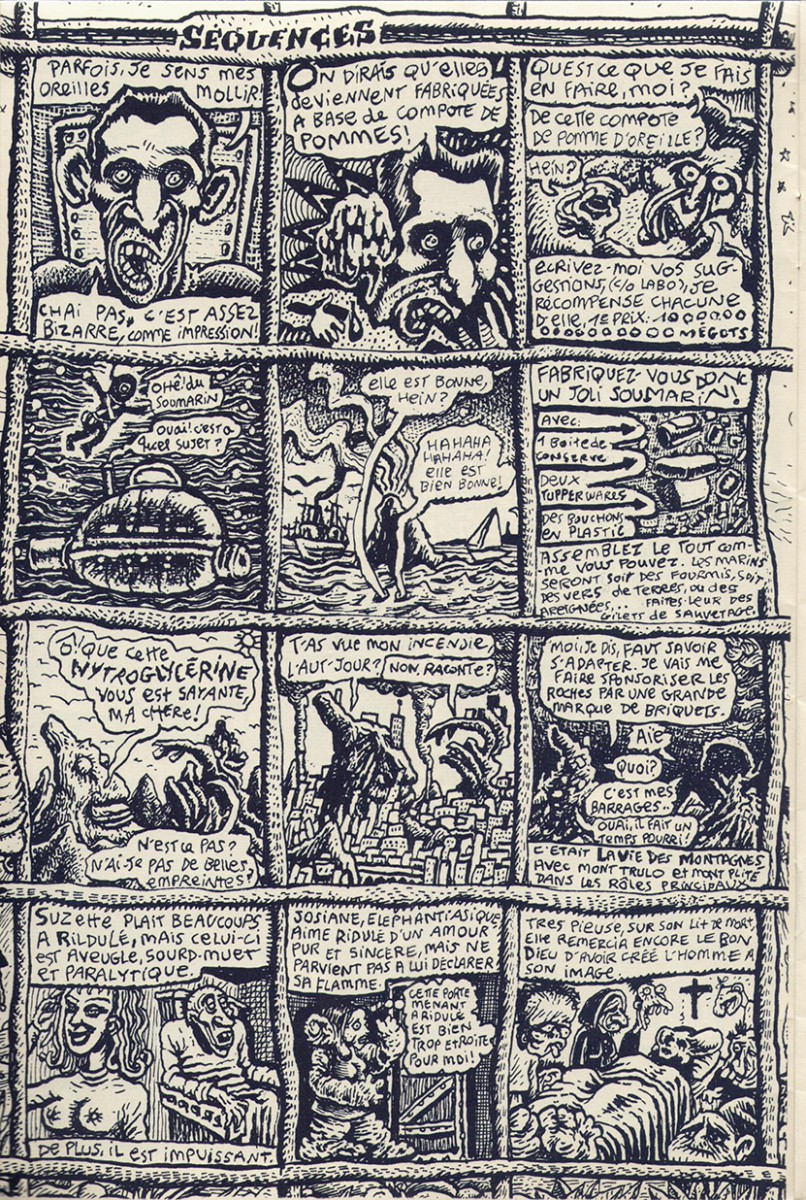 SÉQUENCES
PARFOIS, JE SENS MES
OREILLES MOLLIR!
CHAI PAS, C'EST ASSEZ
BIZARRE, COMME IMPRESSION!
ON DIRAIS QU'ELLES
DEVIENNENT FABRIQUÉES
A BASE DE COMPOTE DE
POMMES!
QUEST CE QUE JE FAIS
EN FAIRE, MOI?
DE CETTE COMPOTE
DE POMME D'OREILLE?
HEIN?
ECRIVEZ-MOI VOS SUG-
GESTIONS, (C/O LABO), JE
RÉCOMPENSE CHACUNE
D'ELLE. 1E PRIX: 1000000
0000000000 MÉGOTS
OHÉ! DU
SOUMARIN
OUAI! C'EST A
QUEL SUJET?
ELLE EST BONNE,
HEIN?
HAHAHA
HAHAHA!
ELLE EST
BIEN BONNE!
FABRIQUEZ-VOUS DONC
UN JOLI SOUMARIN!
AVEC:
1 BOITE DE
CONSERVE
DEUX
TUPPERWARES
DES BOUCHONS
EN PLASTIC
ASSEMBLEZ LE TOUT COM-
ME VOUS POUVEZ. LES MARINS
SERONT SOIT DES FOURMIS, SOIT
DES VERS DE TERRES, OU DES
AREIGNÉES... FAITES-LEUR DES
GILETS DE SAUVETAGE.
Ô! QUE CETTE
NYTROGLYCÉRINE
VOUS EST SAYANTE,
MA CHÈRE!
N'EST CA PAS?
N'AI-JE PAS DE BELLES
EMPREINTES?
T'AS VUE MON INCENDIE,
L'AUT-JOUR? NON, RACONTE?
MOI, JE DIS, FAUT SAVOIR
S'ADAPTER. JE VAIS ME
FAIRE SPONSORISER LES
ROCHES PAR UNE GRANDE
MARQUE DE BRIQUETS.
AÏE
QUOI?
C'EST MES
BARRAGES..
OUAI, IL FAIT UN
TEMPS POURRI!
C'ÉTAIT LA VIE DES MONTAGNES
AVEC MONT TRULO ET MONT PLITE
DANS LES RÔLES PRINCIPAUX
SUZETTE PLAIT BEAUCOUPS
A RILDULE, MAIS CELUI-CI
EST AVEUGLE, SOURD-MUET
ET PARALYTIQUE.
DE PLUS, IL EST IMPUISSANT.
JOSIANE, ELEPHANTIASIQUE
AIME RIDULE D'UN AMOUR
PUR ET SINCÈRE, MAIS NE
PARVIENT PAS A LUI DÉCLARER
SA FLAMME.
CETTE PORTE
MENANT
A RIDULE
EST BIEN
TROP ETROITE
POUR MOI!
TRES PIEUSE, SUR SON LIT DE MORT,
ELLE REMERCIA ENCORE LE BON
DIEU D'AVOIR CRÉÉ L'HOMME A
SON IMAGE.